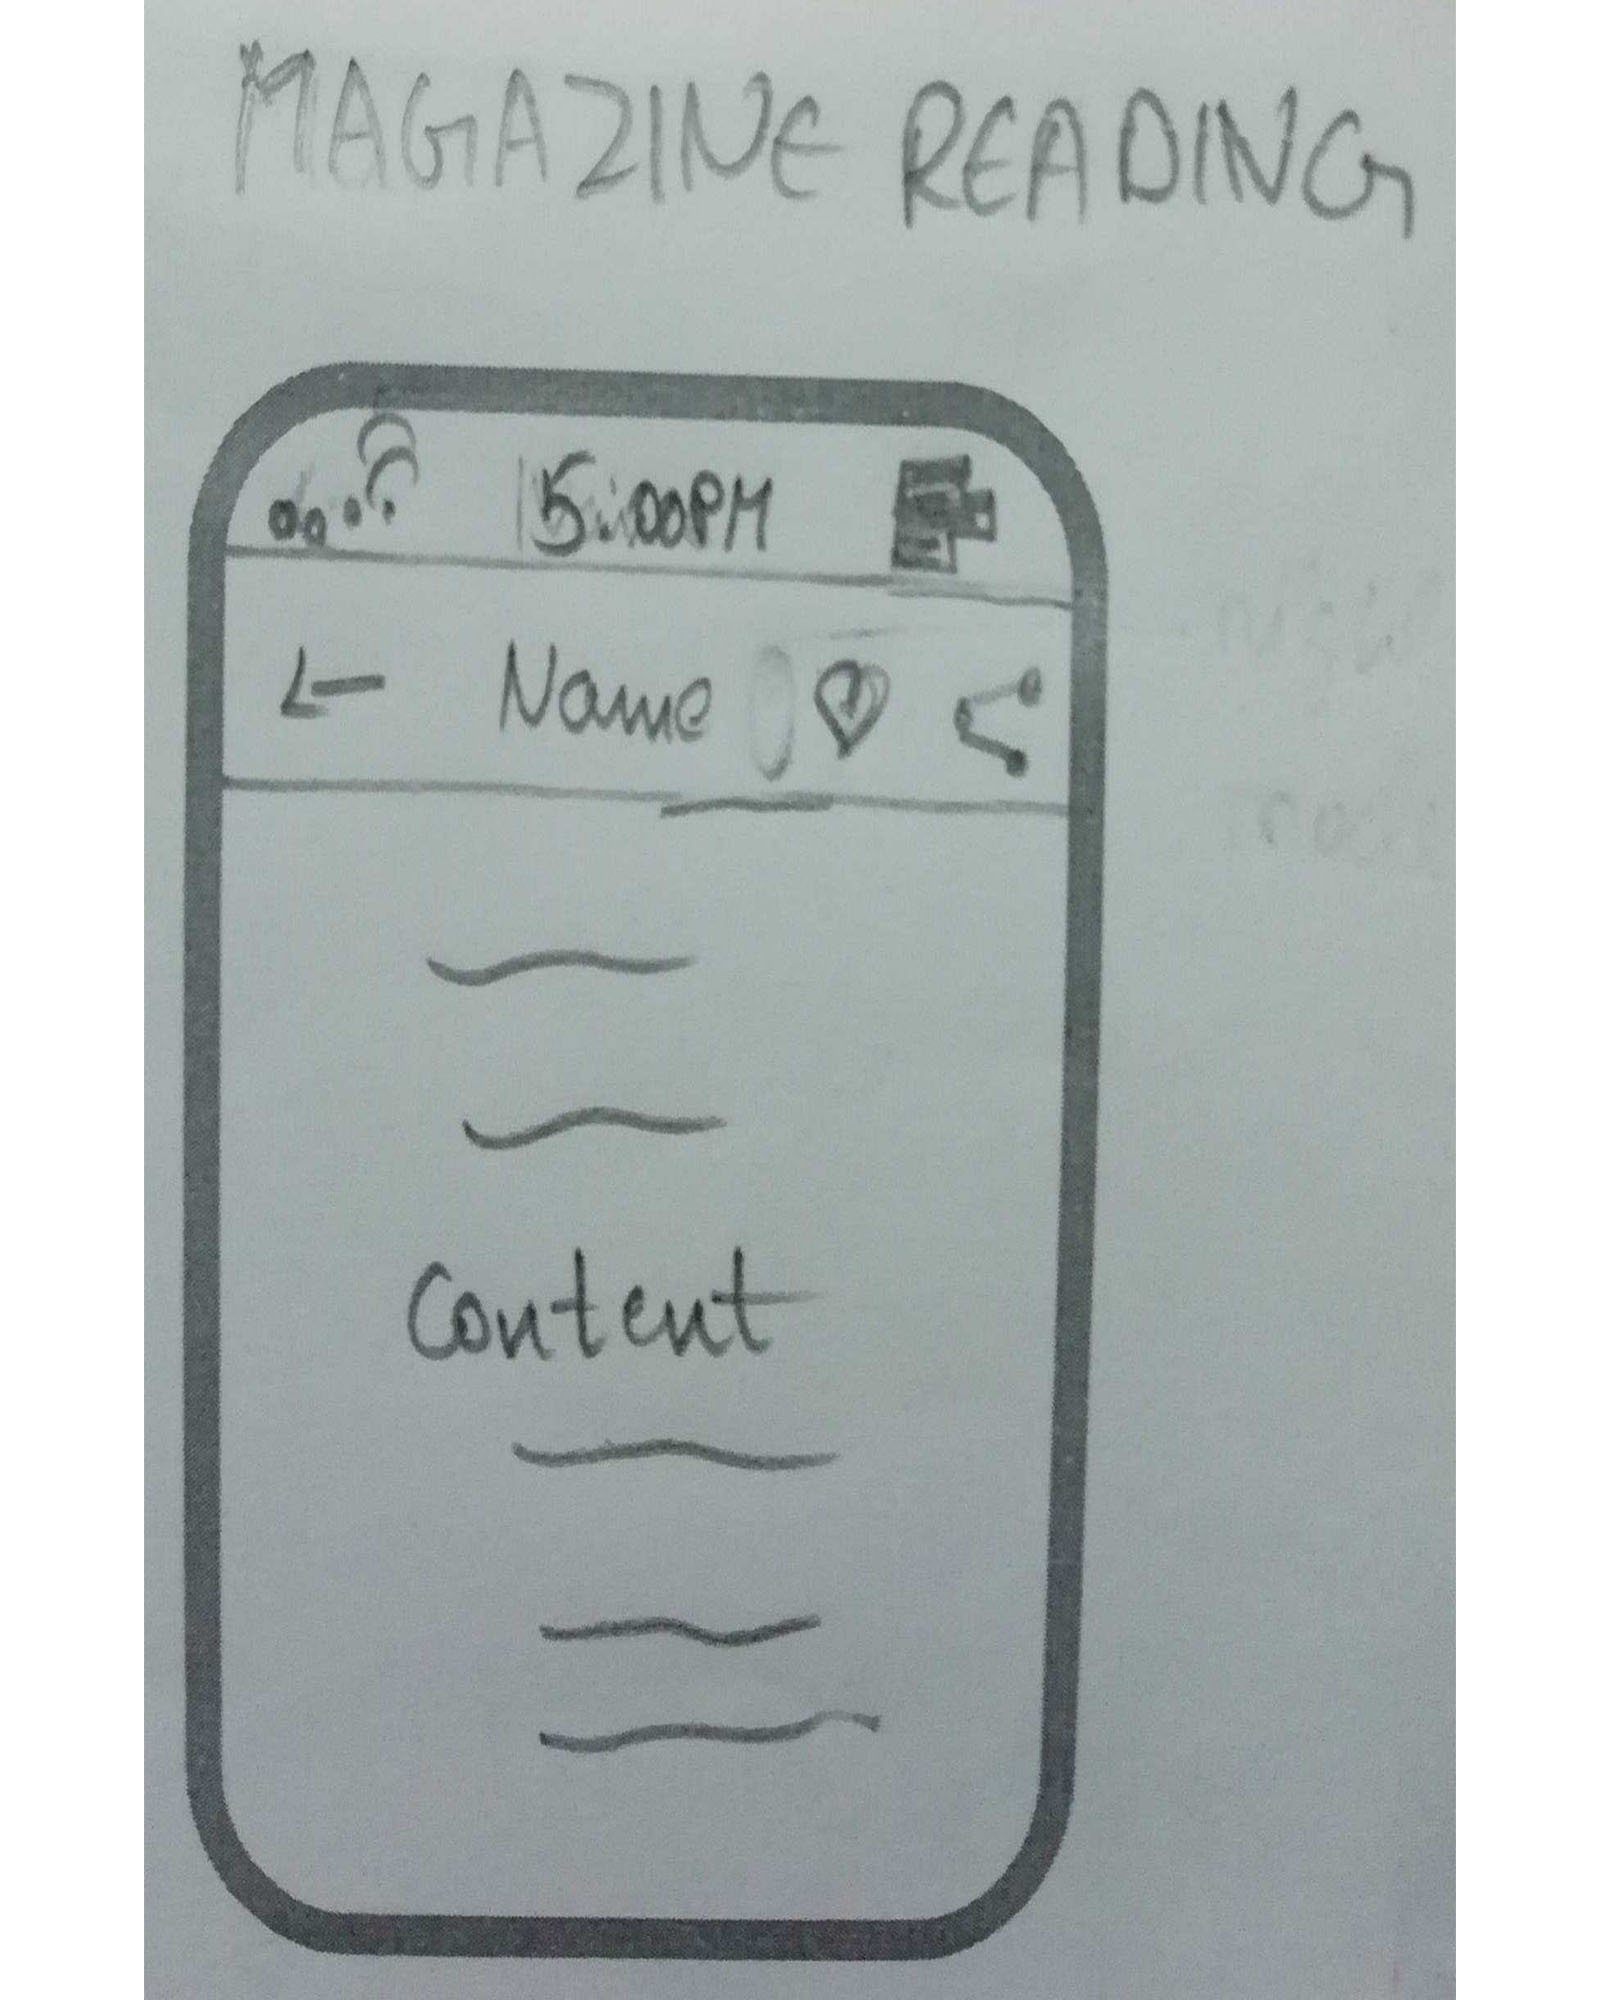 MAGAZINE READING
5:00PM
Name
Content